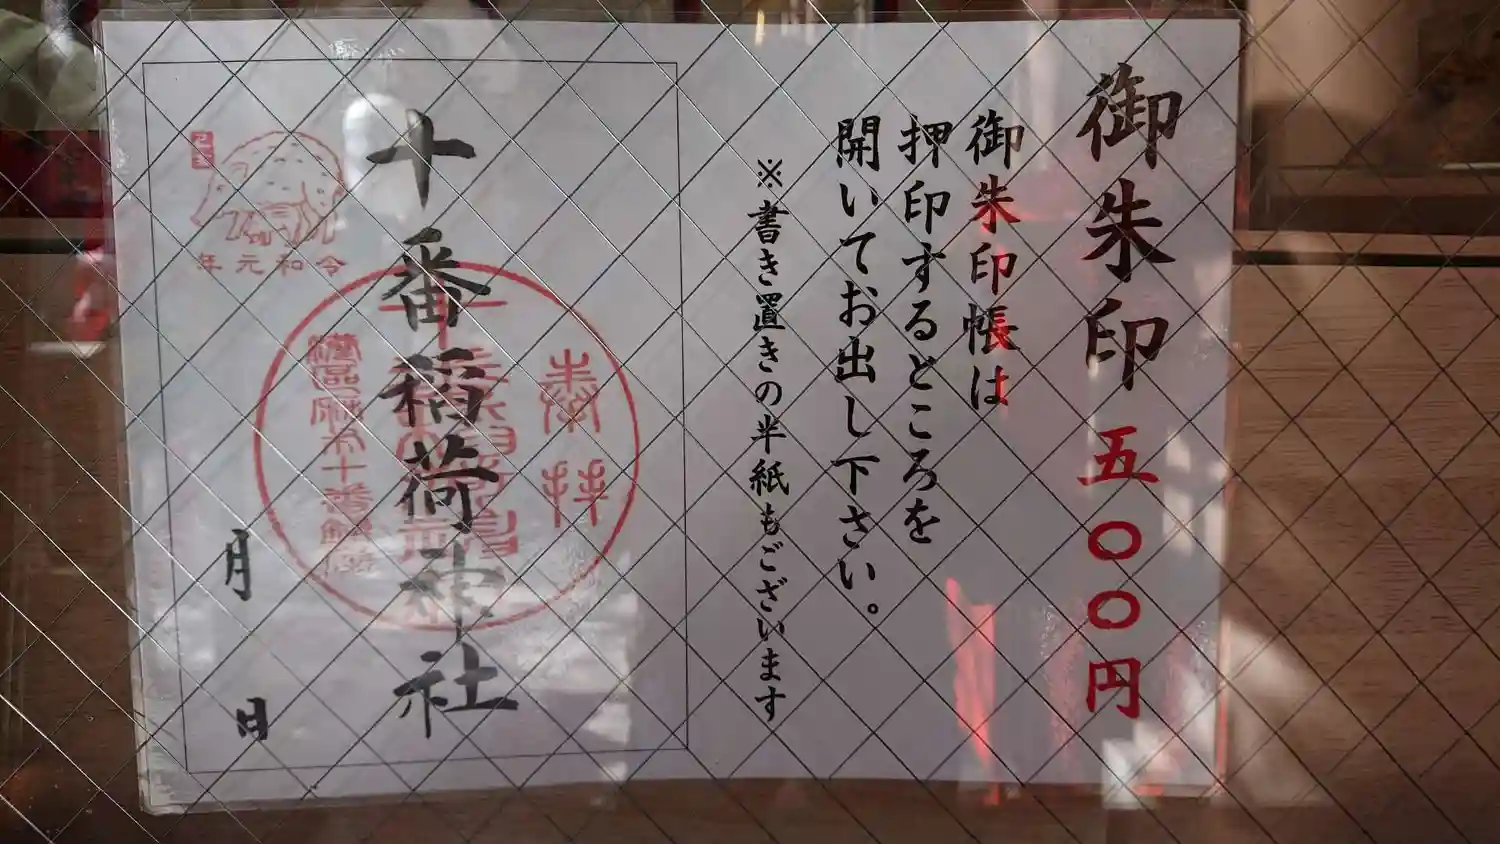 御朱印 五〇〇円
御朱印帳は
押印するところを
開いてお出し下さい。
※書き置きの半紙もございます
奉拝
十番稲荷神社
令和元年
己亥
月 日